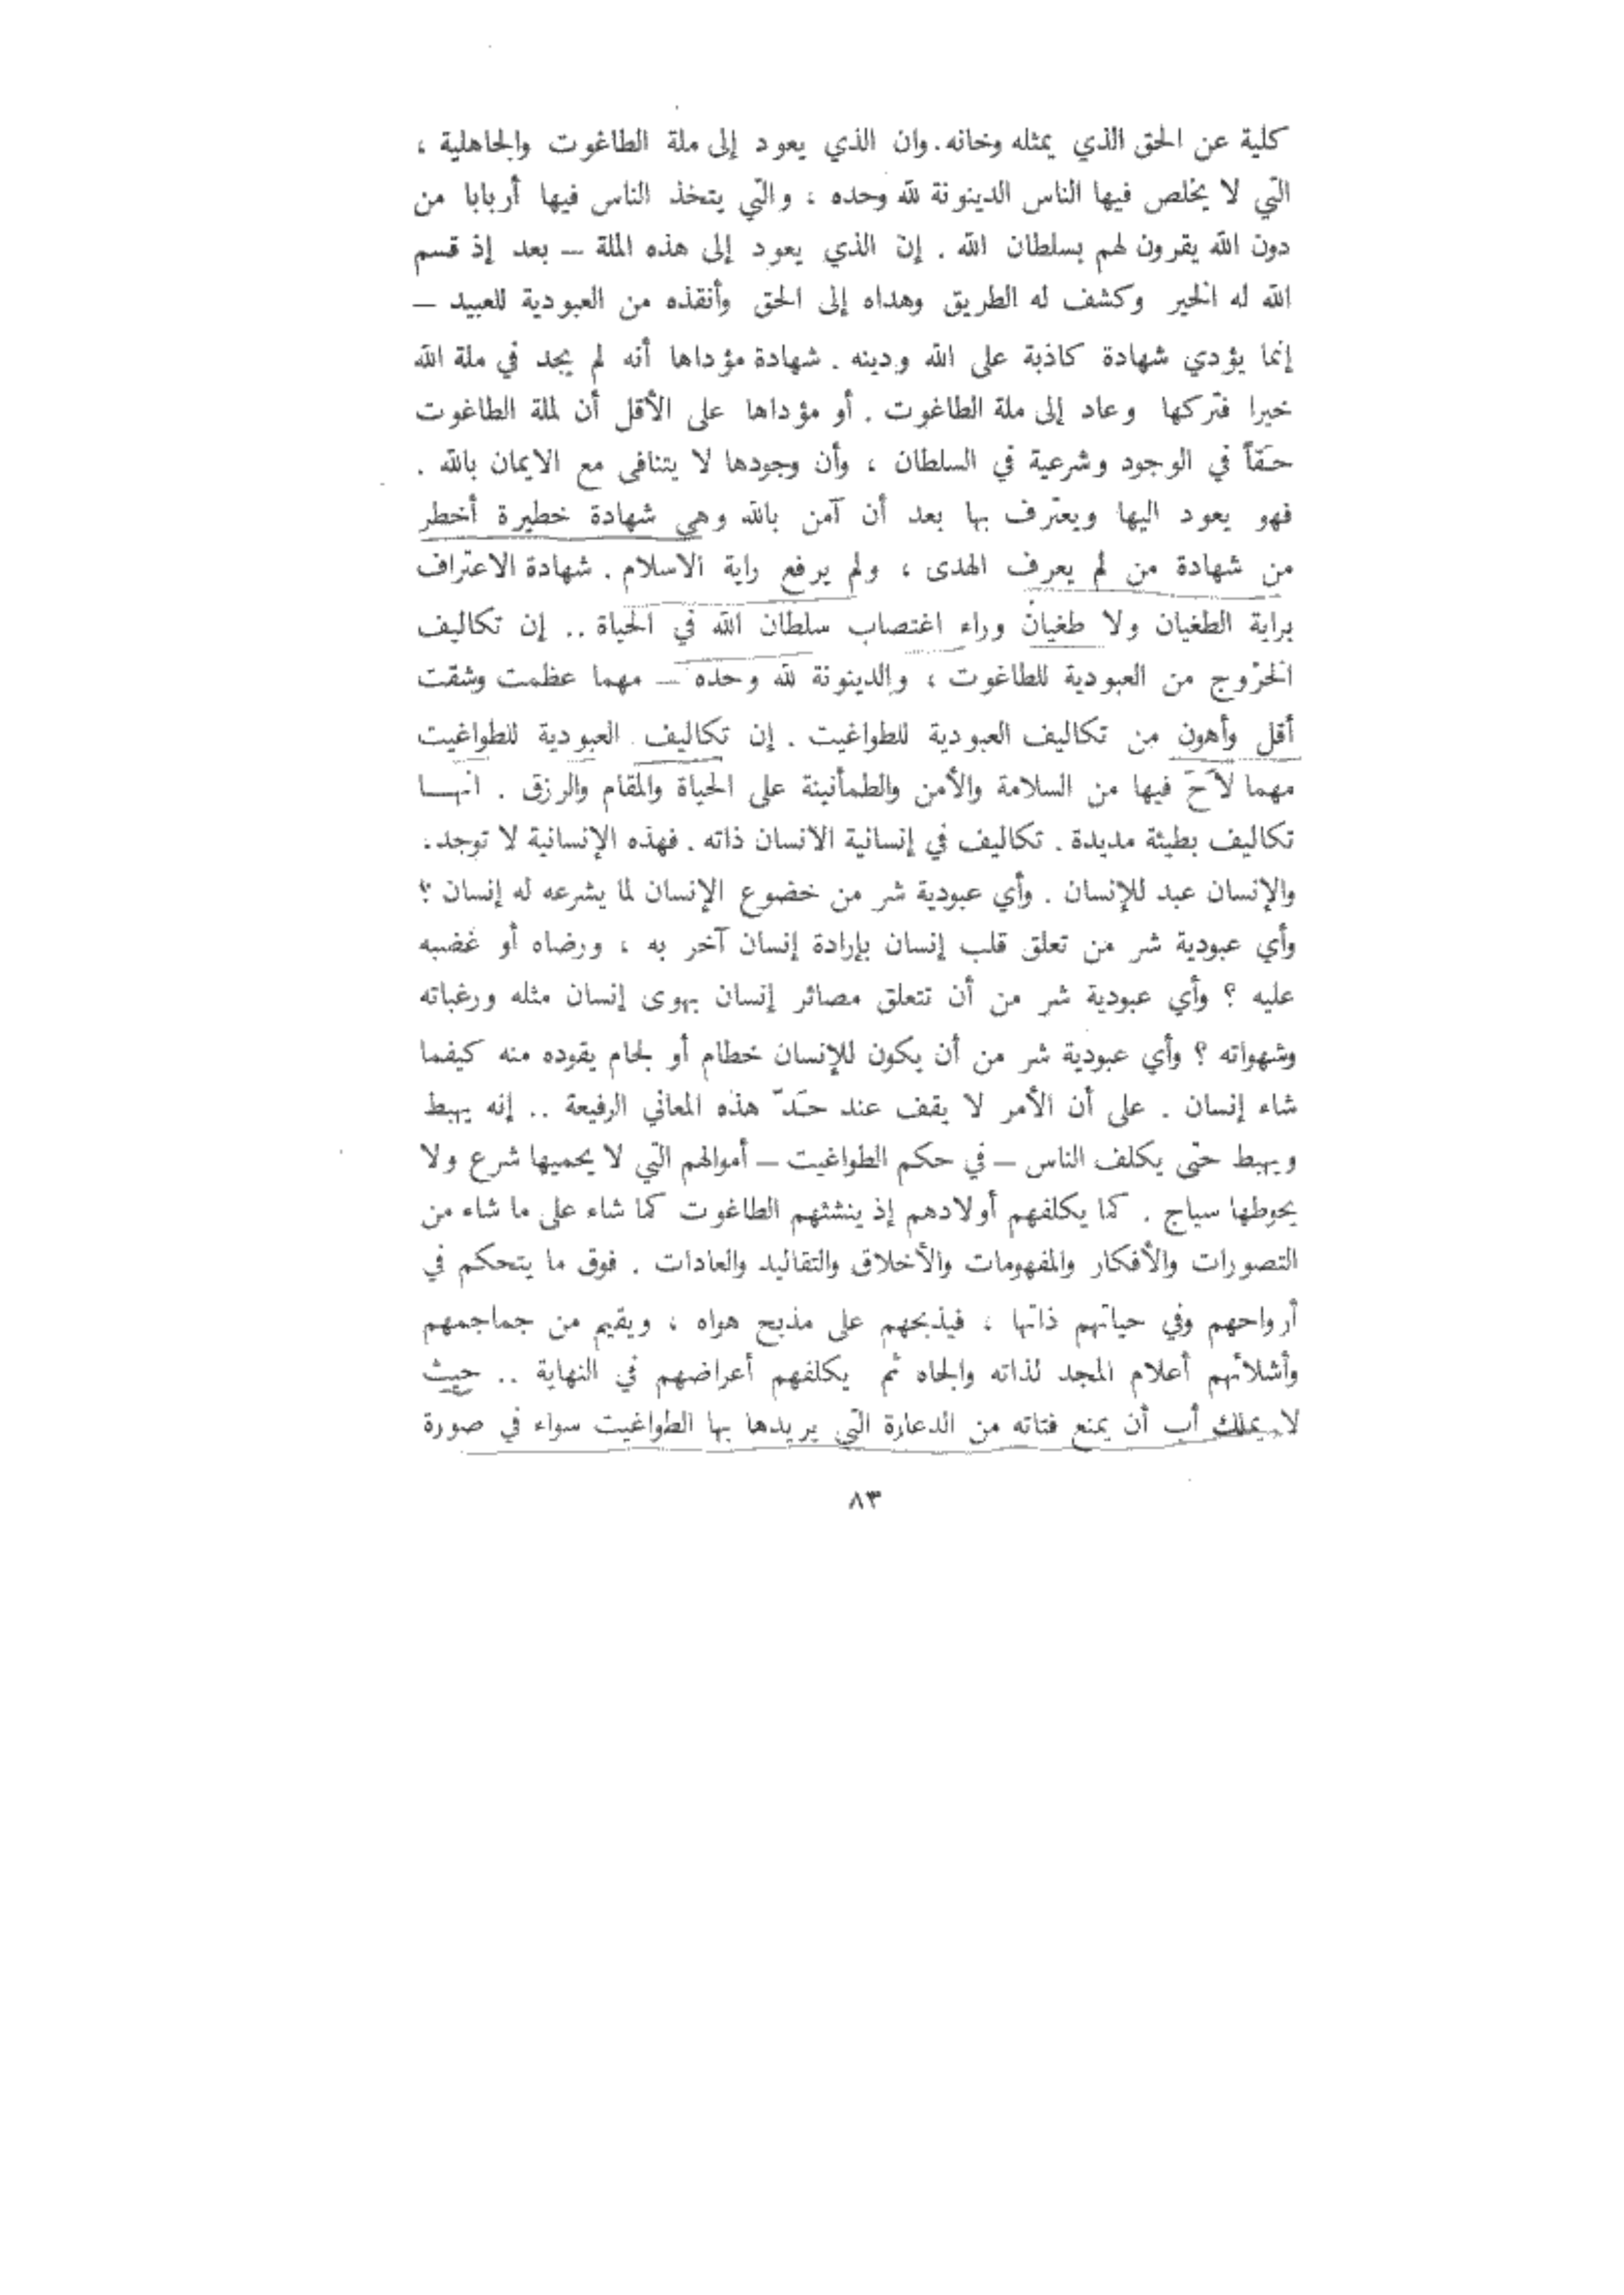 كلية عن الحق الذي يمثله وخانه. وان الذي يعود إلى ملة الطاغوت والجاهلية ،
التي لا يخلص فيها الناس الدينونة لله وحده ، والتي يتخذ الناس فيها أربابا من
دون الله يقرون لهم بسلطان الله . إن الذي يعود إلى هذه الملة – بعد إذ قسم
الله له الخير وكشف له الطريق وهداه إلى الحق وأنقذه من العبودية للعبيد –
إنما يؤدي شهادة كاذبة على الله ودينه . شهادة مؤداها أنه لم يجد في ملة الله
خيرا فتركها وعاد إلى ملة الطاغوت . أو مؤداها على الأقل أن لملة الطاغوت
حَقاً في الوجود وشرعية في السلطان ، وأن وجودها لا يتنافى مع الايمان بالله .
فهو يعود اليها ويعترف بها بعد أن آمن بالله وهي شهادة خطيرة أخطر
من شهادة من لم يعرف الهدى ، ولم يرفع راية الاسلام . شهادة الاعتراف
براية الطغيان ولا طغيان وراء اغتصاب سلطان الله في الحياة .. إن تكاليف
الخروج من العبودية للطاغوت ، والدينونة لله وحده – مهما عظمت وشقت
أقل وأهون من تكاليف العبودية للطواغيت . إن تكاليف العبودية للطواغيت
مهما لاَحَ فيها من السلامة والأمن والطمأنينة على الحياة والمقام والرزق . انهــا
تكاليف بطيئة مديدة . تكاليف في إنسانية الانسان ذاته . فهذه الإنسانية لا توجد.
والإنسان عبد للإنسان . وأي عبودية شر من خضوع الإنسان لما يشرعه له إنسان ؟
وأي عبودية شر من تعلق قلب إنسان بإرادة إنسان آخر به ، ورضاه أو غضبه
عليه ؟ وأي عبودية شر من أن تتعلق مصائر إنسان بهوى إنسان مثله ورغباته
وشهواته ؟ وأي عبودية شر من أن يكون للإنسان خطام أو لجام يقوده منه كيفما
شاء إنسان . على أن الأمر لا يقف عند حَدّ هذه المعاني الرفيعة .. إنه يهبط
ويهبط حتى يكلف الناس – في حكم الطواغيت – أموالهم التي لا يحميها شرع ولا
يحوطها سياج . كما يكلفهم أولادهم إذ ينشئهم الطاغوت كما شاء على ما شاء من
التصورات والأفكار والمفهومات والأخلاق والتقاليد والعادات . فوق ما يتحكم في
أرواحهم وفي حياتهم ذاتها ، فيذبحهم على مذبح هواه ، ويقيم من جماجمهم
وأشلائهم أعلام المجد لذاته والجاه ثم يكلفهم أعراضهم في النهاية .. حيث
لا يملك أب أن يمنع فتاته من الدعارة التي يريدها بها الطواغيت سواء في صورة
٨٣